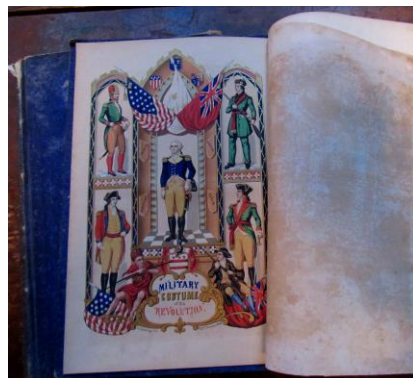 MILITARY
COSTUME
REVOLUTION.